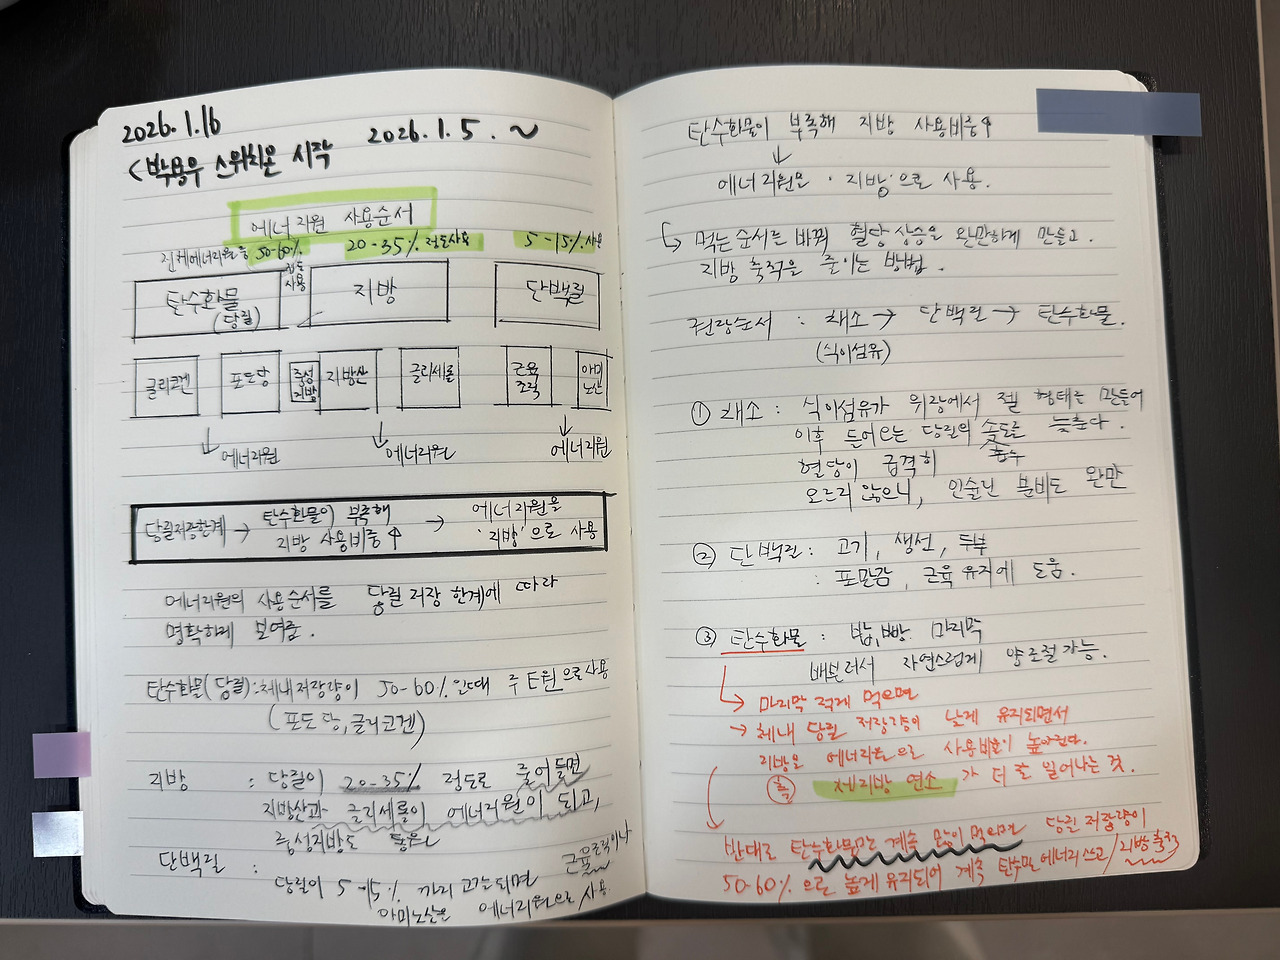 2026.1.16
2026.1.5. ~
<박용우 스위치온 시작
에너지원 사용순서
전체에너지원 중 50-60% 정도 사용
20-35% 정도사용
5-15% 사용
탄수화물
(당질)
지방
단백질
글리코겐
포도당
중성지방
지방산
글리세롤
근육조직
아미노산
↓ 에너지원
↓ 에너지원
↓ 에너지원
당질저장한계 → 탄수화물이 부족해 지방 사용비중↑ → 에너지원을 '지방'으로 사용
에너지원의 사용순서를 당질 저장 한계에 따라
명확하게 보여줌.
탄수화물(당질): 체내저장량이 50-60%인때 주 E원으로사용
(포도당, 글리코겐)
지방 : 당질이 20-35% 정도로 줄어들면
지방산과 글리세롤이 에너지원이 되고,
중성지방도
단백질 :
당질이 5-15% 까지 고갈되면 근육조직이나
아미노산을 에너지원으로 사용
탄수화물이 부족해 지방 사용비중↑
↓
에너지원을 '지방'으로 사용.
↳ 먹는순서를 바꿔 혈당 상승을 완만하게 만들고.
지방 축적을 줄이는 방법.
권장순서 : 채소 → 단백질 → 탄수화물.
(식이섬유)
① 채소 : 식이섬유가 위장에서 젤 형태를 만들어
이후 들어오는 당질의 흡수 속도를 늦춘다.
혈당이 급격히
오르지 않으니, 인슐린 분비도 완만
② 단백질 : 고기, 생선, 두부
: 포만감, 근육유지에 도움.
③ 탄수화물 : 밥, 빵 마지막
배불러서 자연스럽게 양조절가능.
↳ 마지막 적게 먹으면
→ 체내 당질 저장량이 낮게 유지되면서
지방을 에너지원으로 사용비율이 높아진다.
즉 체지방 연소가 더 잘 일어나는 것.
반대로 탄수화물만 계속 많이 먹으면 당질 저장량이
50-60%으로 높게 유지되어 계속 탄수만 에너지 쓰고/지방축적